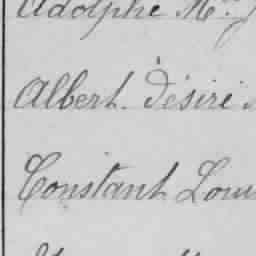 Adolphe M
Albert Désiré
Constant Loui